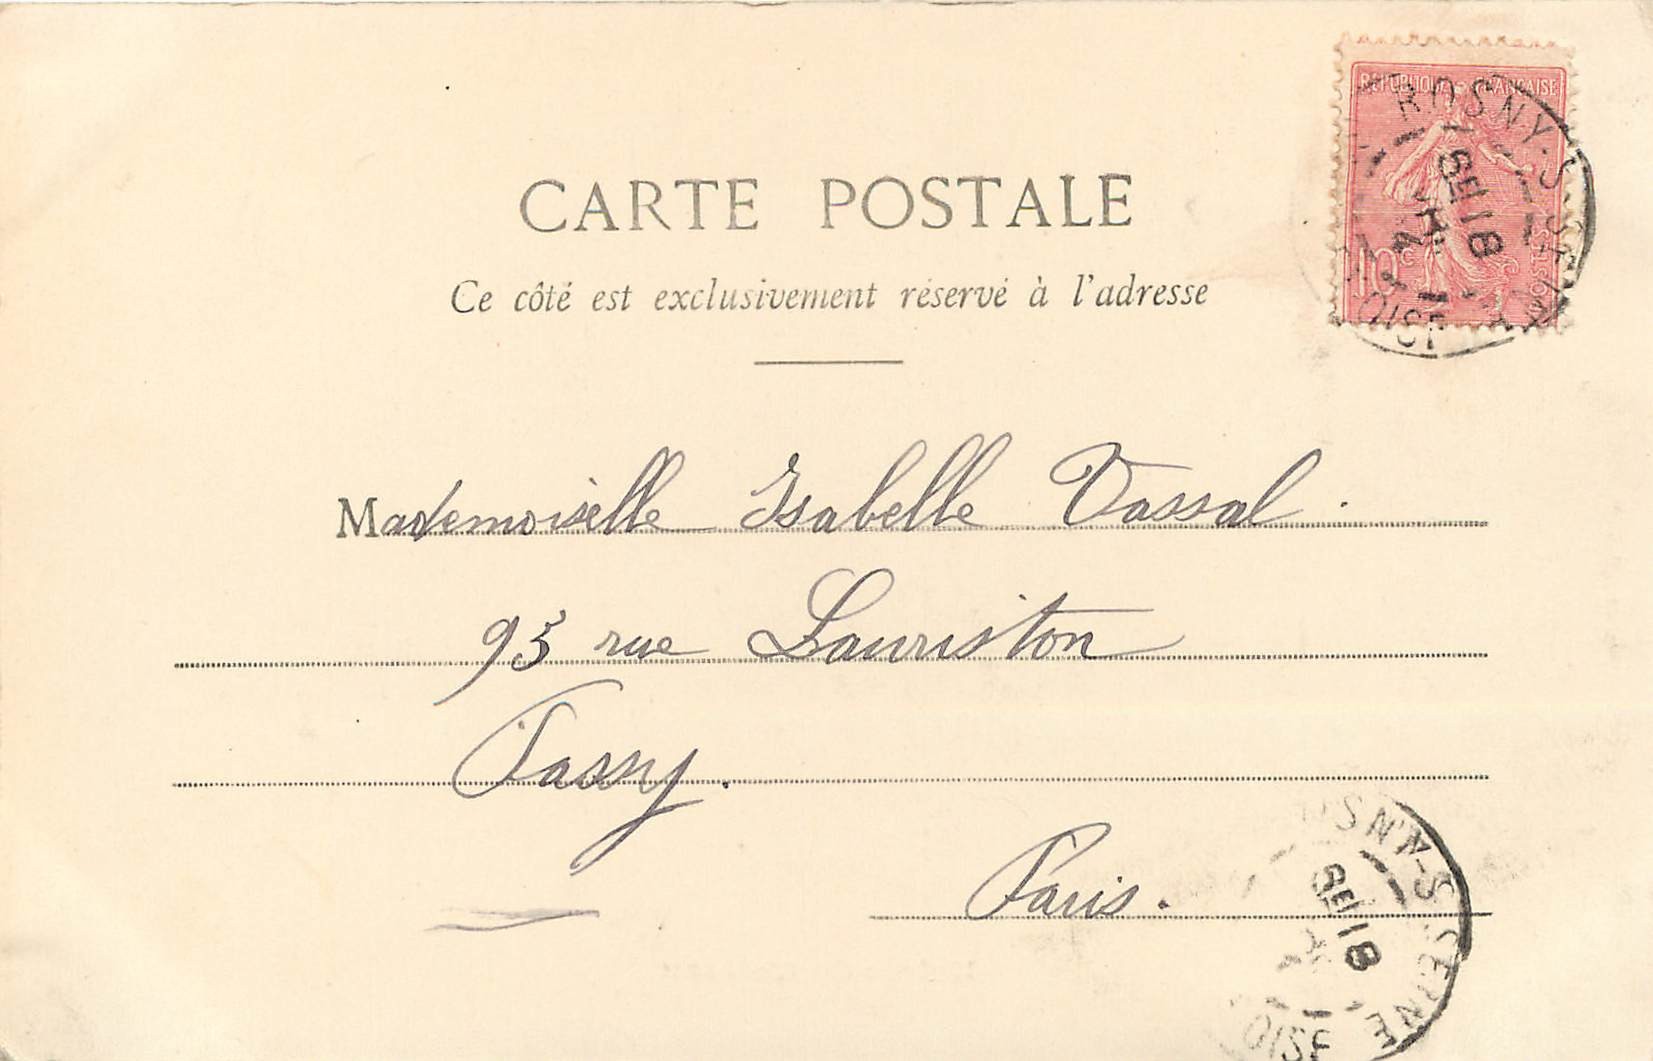 CARTE POSTALE
Ce côté est exclusivement réservé à l'adresse
RÉPUBLIQUE FRANÇAISE
10c
POSTES
ROSNY-S
OISE
Mademoiselle Isabelle Vassal.
95 rue Lauriston
Passy.
Paris.
SEINE
OISE